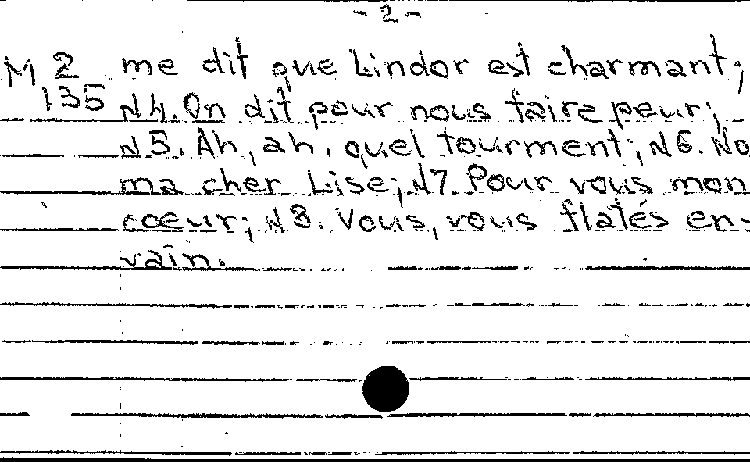 -2-
M 2 me dit que Lindor est charmant;
135 N4. On dit pour nous faire peur;
N5. Ah, ah, quel tourment; N6. No
ma cher Lise; N7. Pour vous mon
coeur; N8. Vous, vous flatés en-
vain.